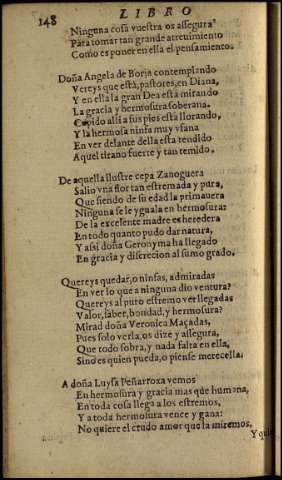 148
LIBRO
Ninguna cosa vuestra os assegura?
Para tomar tan grande atreuimiento
Como es poner en ella el pensamiento.
Doña Angela de Borja contemplando
Vereys que està, pastores, en Diana,
Y en ella la gran Dea està mirando
La gracia y hermosura soberana.
Cupido alli a sus pies està llorando,
Y la hermosa ninfa muy vfana
En ver delante della està rendido
Aquel tirano fuerte y tan temido.
De aquella ilustre cepa Zanoguera
Salio vna flor tan estremada y pura,
Que siendo de su edad la primauera
Ninguna se le yguala en hermosura:
De la excelente madre es heredera
En todo quanto pudo dar natura,
Y assi doña Geronyma ha llegado
En gracia y discrecion al sumo grado.
Quereys quedar, o ninfas, admiradas
En ver lo que a ninguna dio ventura?
Quereys al puro estremo ver llegadas
Valor, saber, bondad, y hermosura?
Mirad doña Veronica Maçadas,
Pues solo verla, os dize y assegura,
Que todo sobra, y nada falta en ella,
Sino es quien pueda, o piense merecella.
A doña Luysa Peñarroxa vemos
En hermosura y gracia mas que humana,
En toda cosa llega a los estremos,
Y a toda hermosura vence y gana:
No quiere el crudo amor que la miremos,
Y quie